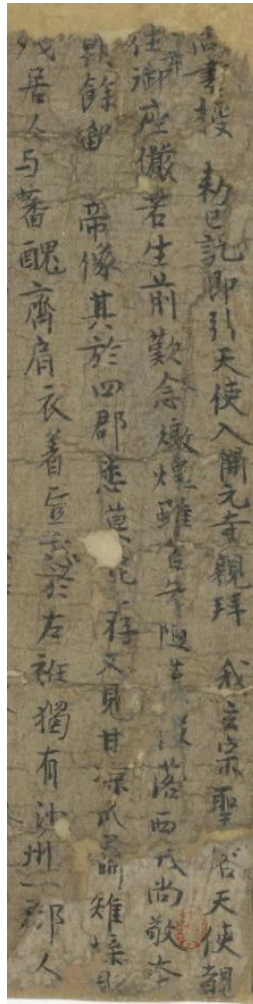 尚書授 勑已訖即引天使入開元寺親拜 我玄宗聖容天使覩
往年御座儼若生前歎念燉煌雖百年阻漢沒落西戎尚敬本
朝餘留 帝像其於四郡悉莫能存又見甘涼瓜肅雉堞彫
殘居人与蕃醜齊肩衣着豈忘於左衽獨有沙州一郡人